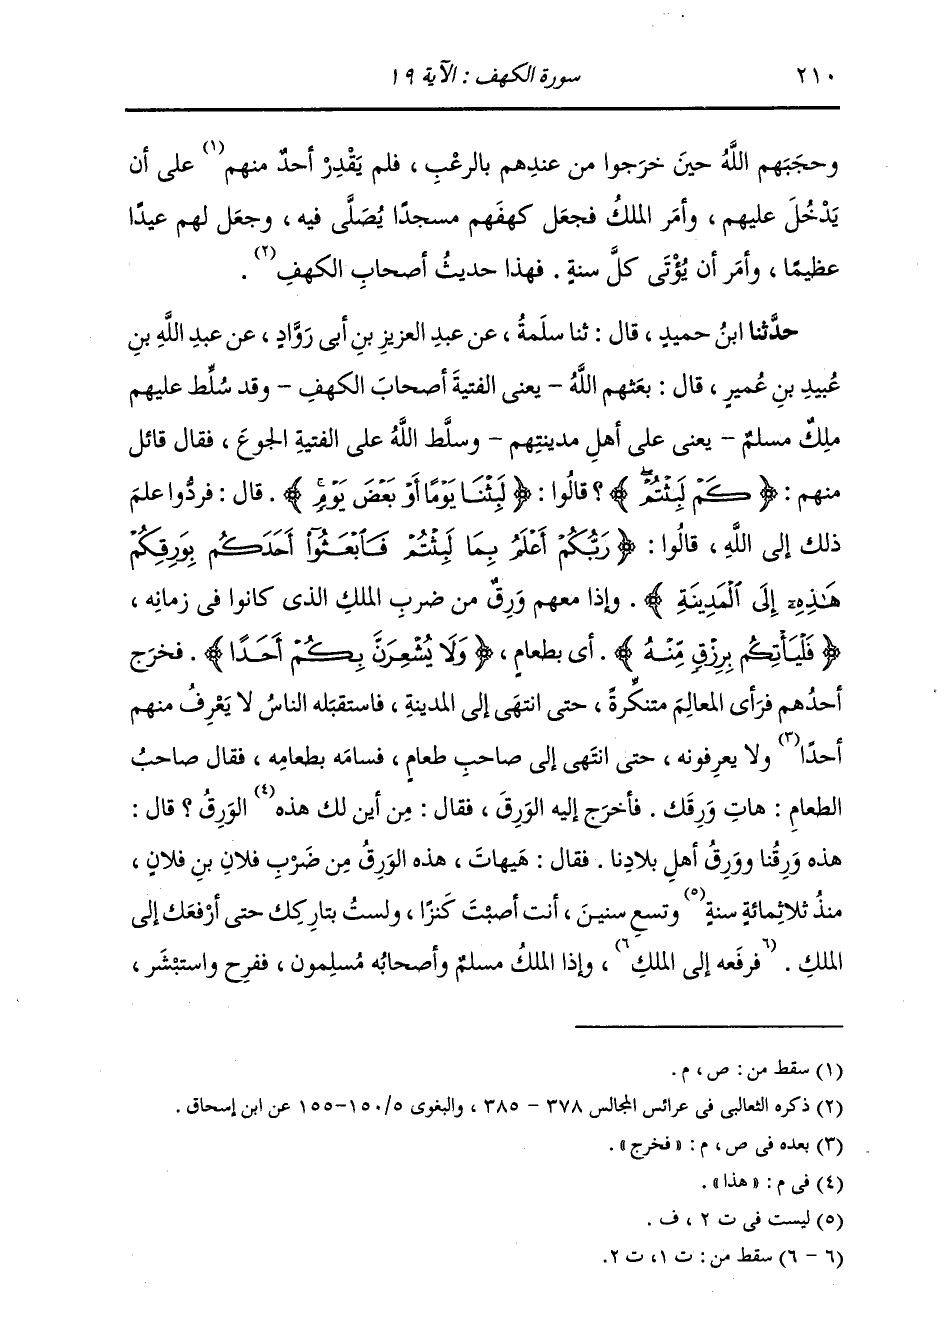 ٢١٠ سورة الكهف : الآية ١٩
وحجَبَهم اللَّهُ حينَ خرَجوا من عندِهم بالرعْبِ ، فلم يَقْدِرْ أحدٌ منهم(١) على أن
يَدْخُلَ عليهم ، وأمَر الملكُ فجعَل كهفَهم مسجدًا يُصَلَّى فيه ، وجعَل لهم عيدًا
عظيمًا ، وأمَر أن يُؤْتَى كلَّ سنةٍ . فهذا حديثُ أصحابِ الكهفِ(٢) .
حدَّثنا ابنُ حميدٍ ، قال : ثنا سلَمةُ ، عن عبدِ العزيزِ بنِ أبى رَوَّادٍ ، عن عبدِ اللهِ بنِ
عُبيدِ بنِ عُميرٍ ، قال : بعَثهم اللَّهُ – يعنى الفتيةَ أصحابَ الكهفِ – وقد سُلِّط عليهم
ملِكٌ مسلمٌ – يعنى على أهلِ مدينتِهم – وسلَّط اللَّهُ على الفتيةِ الجوعَ ، فقال قائل
منهم : ﴿ كَمْ لَبِثْتُمْ ۖ ﴾ ؟ قالُوا : ﴿ لَبِثْنَا يَوْمًا أَوْ بَعْضَ يَوْمٍ ۚ ﴾ . قال : فردُّوا علمَ
ذلك إلى اللَّهِ ، قالُوا : ﴿ رَبُّكُمْ أَعْلَمُ بِمَا لَبِثْتُمْ فَٱبْعَثُوٓا۟ أَحَدَكُم بِوَرِقِكُمْ
هَٰذِهِۦٓ إِلَى ٱلْمَدِينَةِ ﴾ . وإذا معهم وَرِقٌ من ضربِ الملكِ الذى كانوا فى زمانِه ،
﴿ فَلْيَأْتِكُم بِرِزْقٍ مِّنْهُ ﴾ . أى بطعامٍ ، ﴿ وَلَا يُشْعِرَنَّ بِكُمْ أَحَدًا ﴾ . فخرَج
أحدُهم فرَأى المعالِمَ متنكِّرةً ، حتى انتهَى إلى المدينةِ ، فاستقبَله الناسُ لا يَعْرِفُ منهم
أحدًا(٣) ولا يعرِفونه ، حتى انتَهى إلى صاحبِ طعامٍ ، فسامَه بطعامِه ، فقال صاحبُ
الطعامِ : هاتِ وَرِقَك . فأخرَج إليه الوَرِقَ ، فقال : مِن أين لك هذه(٤) الوَرِقُ ؟ قال :
هذه وَرِقُنا ووَرِقُ أهلِ بلادِنا . فقال : هَيهاتَ ، هذه الوَرِقُ مِن ضَرْبِ فلانِ بنِ فلانٍ ،
منذُ ثلاثِمائةِ سنةٍ(٥) وتسعِ سنينَ ، أنت أصبْتَ كَنزًا ، ولستُ بتارِكِك حتى أرْفعَك إلى
الملكِ . (٦فرفَعه إلى الملكِ٦) ، وإذا الملكُ مسلمٌ وأصحابُه مُسلِمون ، ففرِح واستبْشَر ،
(١) سقط من : ص ، م .
(٢) ذكره الثعالبى فى عرائس المجالس ٣٧٨ – ٣٨٥ ، والبغوى ٥/ ١٥٠–١٥٥ عن ابن إسحاق .
(٣) بعده فى ص ، م : « فخرج » .
(٤) فى م : « هذا » .
(٥) ليست فى ت ٢ ، ف .
(٦ – ٦) سقط من : ت ١، ت ٢.